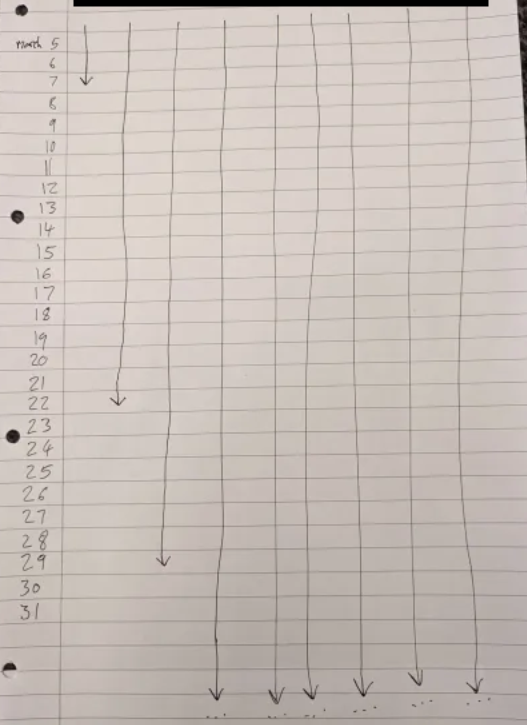 March 5
6
7
8
9
10
11
12
13
14
15
16
17
18
19
20
21
22
23
24
25
26
27
28
29
30
31
... ... ... ... ... ...